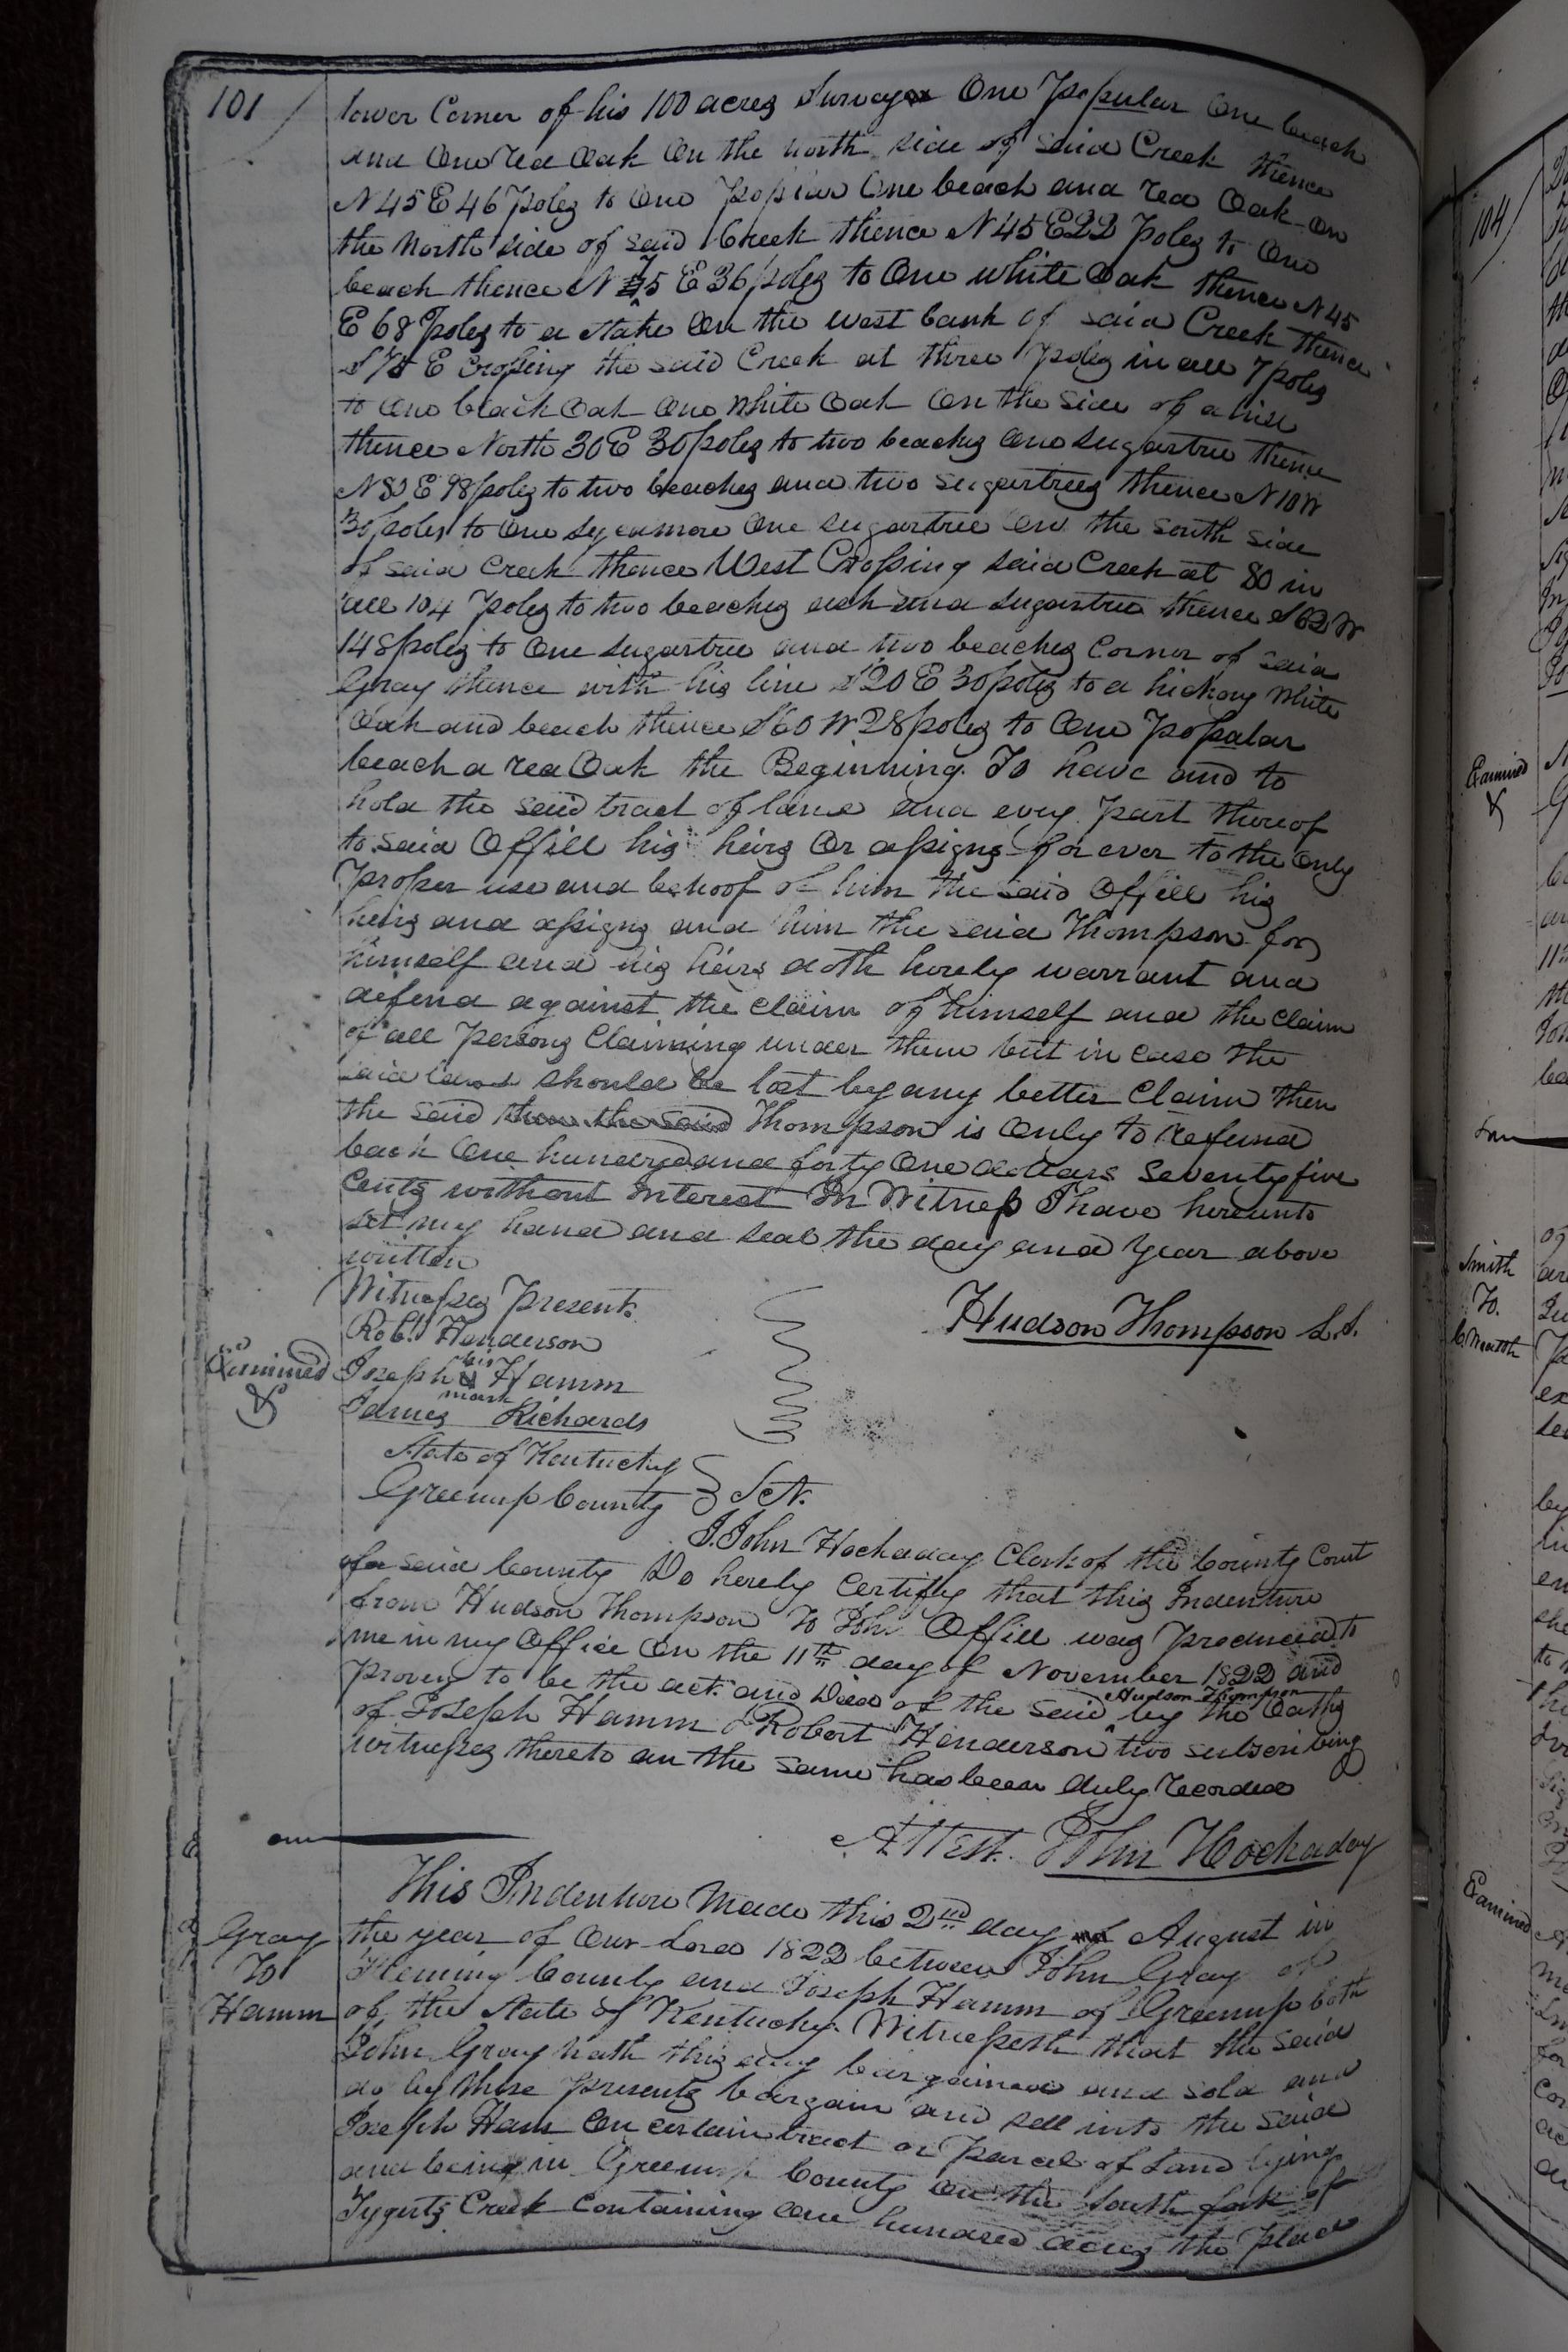 101
lower Corner of his 100 acres Survey One Popular One beach
and One red Oak On the north side of said Creek thence
N 45 E 46 Poles to One Poplar One beach and red Oak On
the North side of said Creek thence N 45 E 22 Poles to One
beach thence N 75 E 36 poles to One white Oak thence N 45
E 68 Poles to a stake On the west bank of said Creek thence
S 75 E Crossing the said Creek at three Poles in all 7 poles
to One black Oak One White Oak On the side of a hill
thence North 30 E 30 poles to two beaches One sugartree thence
N 80 E 98 poles to two beaches and two sugartrees thence N 10 W
30 poles to One Sycamore One sugartree On the south side
of said Creek thence West Crossing said Creek at 80 in
all 104 Poles to two beaches ash and sugartree thence S 62 W
148 poles to One sugartree and two beaches Corner of said
Gray thence with his line S 20 E 30 poles to a hickory White
Oak and beach thence S 60 W 28 poles to One Popalar
beach a red Oak the Beginning. To have and to
hold the said tract of land and evry Part thereof
to said Offill his heirs Or assigns for ever to the Only
Proper use and behoof of him the said Offill his
heirs and assigns and him the said Thompson for
himself and his heirs doth hereby warrant and
defend against the Claim of himself and the Claim
of all Persons Claiming under them but in case the
said land should be lost by any better Claim then
the said then the said Thompson is Only to Refund
back One hundred and forty One dollars Seventy five
Cents without Interest In Witness I have hereunto
set my hand and seal the day and Year above
written
Witnesses Present
Hudson Thompson L.S.
Robt. Henderson
Examined
Joseph his mark Hamm
James Richards
State of Kentucky
Greenup County } Sct.
I John Hockaday Clerk of the County Court
for said County Do hereby Certify that this Indenture
from Hudson Thompson To John Offill was Produced to
me in my Office On the 11th day of November 1822 and
Proven to be the act and Deed of the said Hudson Thompson by the Oaths
of Joseph Hamm & Robert Henderson two subscribing
witnesses thereto an the same has been duly Recorded
Attest. John Hockaday
This Indenture Made this 2nd day of August in
Gray
To
Hamm
the year of Our Lord 1822 between John Gray of
Fleming County and Joseph Hamm of Greenup both
of the State of Kentucky. Witnesseth that the said
John Gray hath this day bargained and sold and
do by these Presents bargain and sell into the said
Joseph Ham On certain tract or Parcel of Land lying
and being in Greenup County On the South fork of
Tygerts Creek Containing One hundred acres the Place
104
Examined
Smith
To.
Examined